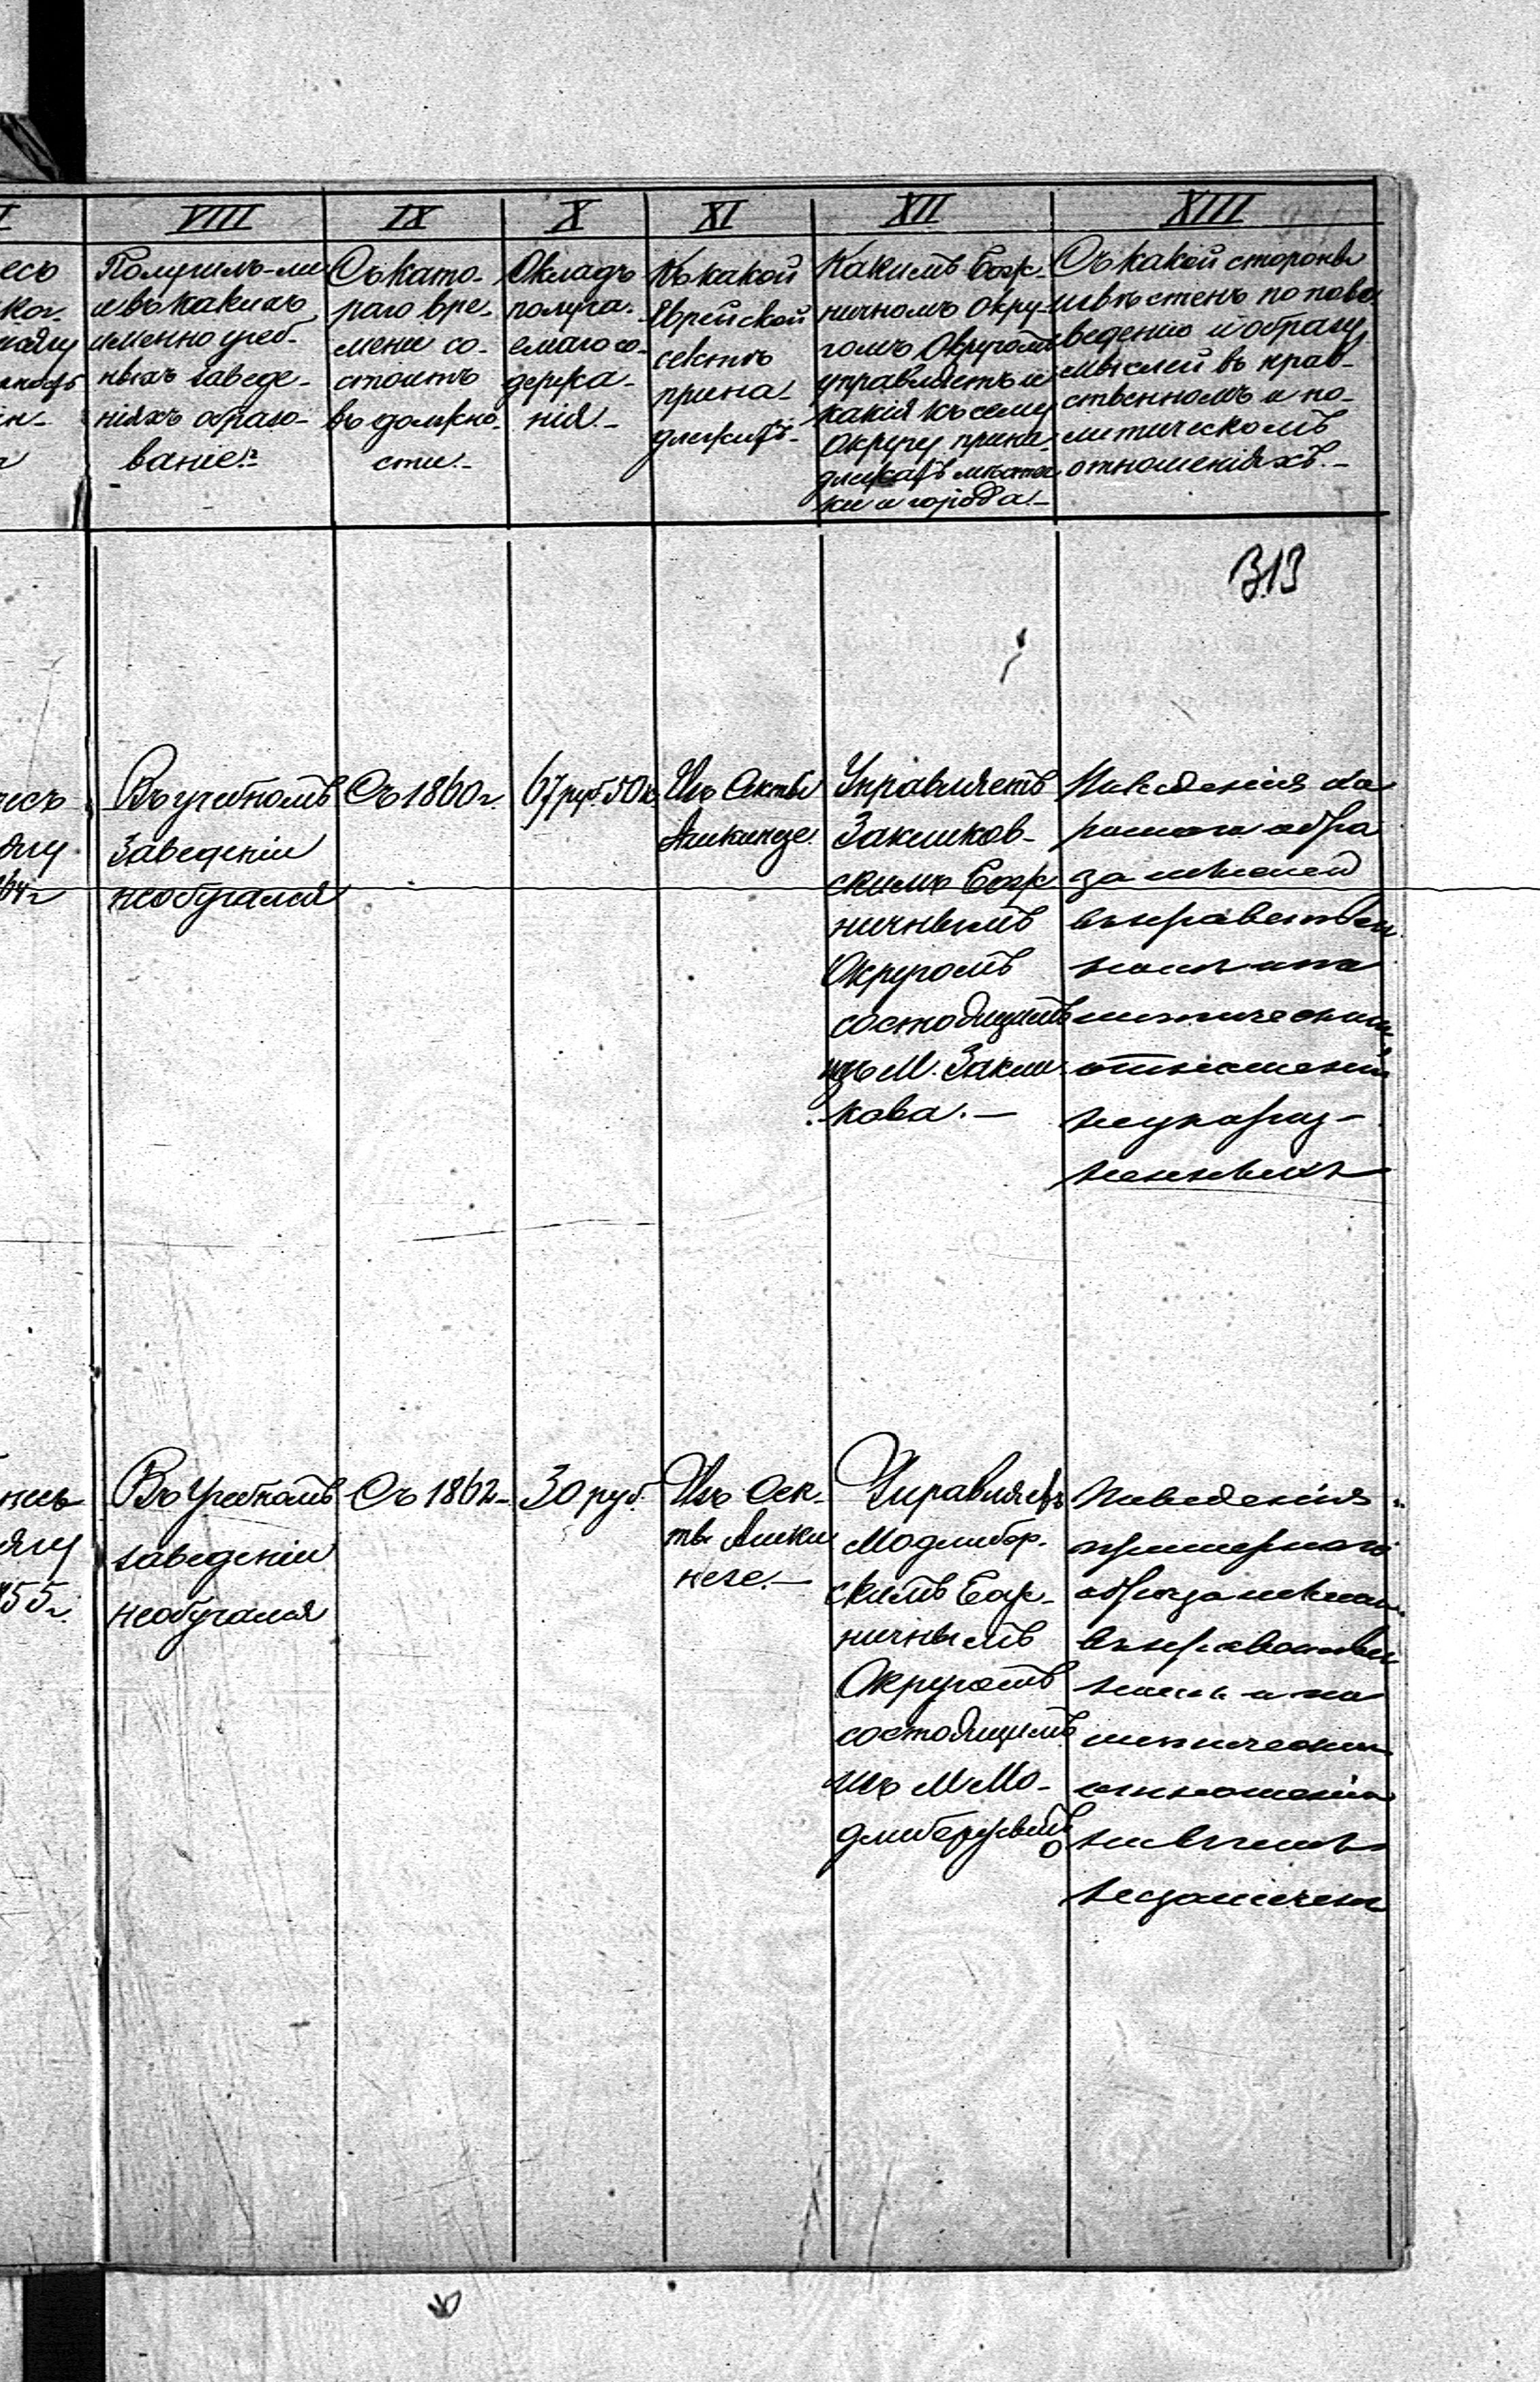 VIII
IX
X
XI
XII
XIII
есь
Получилъ-ли
и въ какихъ
именно учеб-
ныхъ заведе-
ніяхъ образо-
ваніе.
Съ като-
раго вре-
мени со-
стоитъ
въ должно-
сти.-
Окладъ
получа-
емаго со-
держа-
нія.-
Къ какой
Еврейской
сектѣ
прина-
длежитъ.-
Какимъ Бож-
ничномъ Окру-
гомъ Округомъ
управляетъ и
какія къ сему
Округу прина-
длежатъ мѣстеч
ки и города.-
Съ какой стороны
извѣстенъ по пове
ведению и образу
мыслей въ нрав-
ственномъ и по-
литическомъ
отношеніяхъ.-
313
Въ учебномъ
Заведеніи
необучался
Съ 1860 г.
67 руб. 50 к.
Изъ Секты
Ашкинезе.
Управляетъ
Закликов-
скимъ Бож
ничнымъ
Округомъ
состоящимъ
изъ М. Закли-
кова.-
Поведенія хо
рошаго обра
за мыслей
въ нравствен
номъ и по
литическом
отношеніи
неукориз-
ненныхъ
55 г.
Въ Учебномъ
заведеніи
необучался
Съ 1862-
30 руб.
Изъ Сек-
ты Ашки
незе.-
Управляетъ
Модлибор-
скимъ Бож-
ничнымъ
Округомъ
состоящимъ
изъ М Мо-
Поведенія
примернаго
образа мысли
въ нравствен
номъ и по
литическом
отношеніи
ни въ чемъ
незамечен